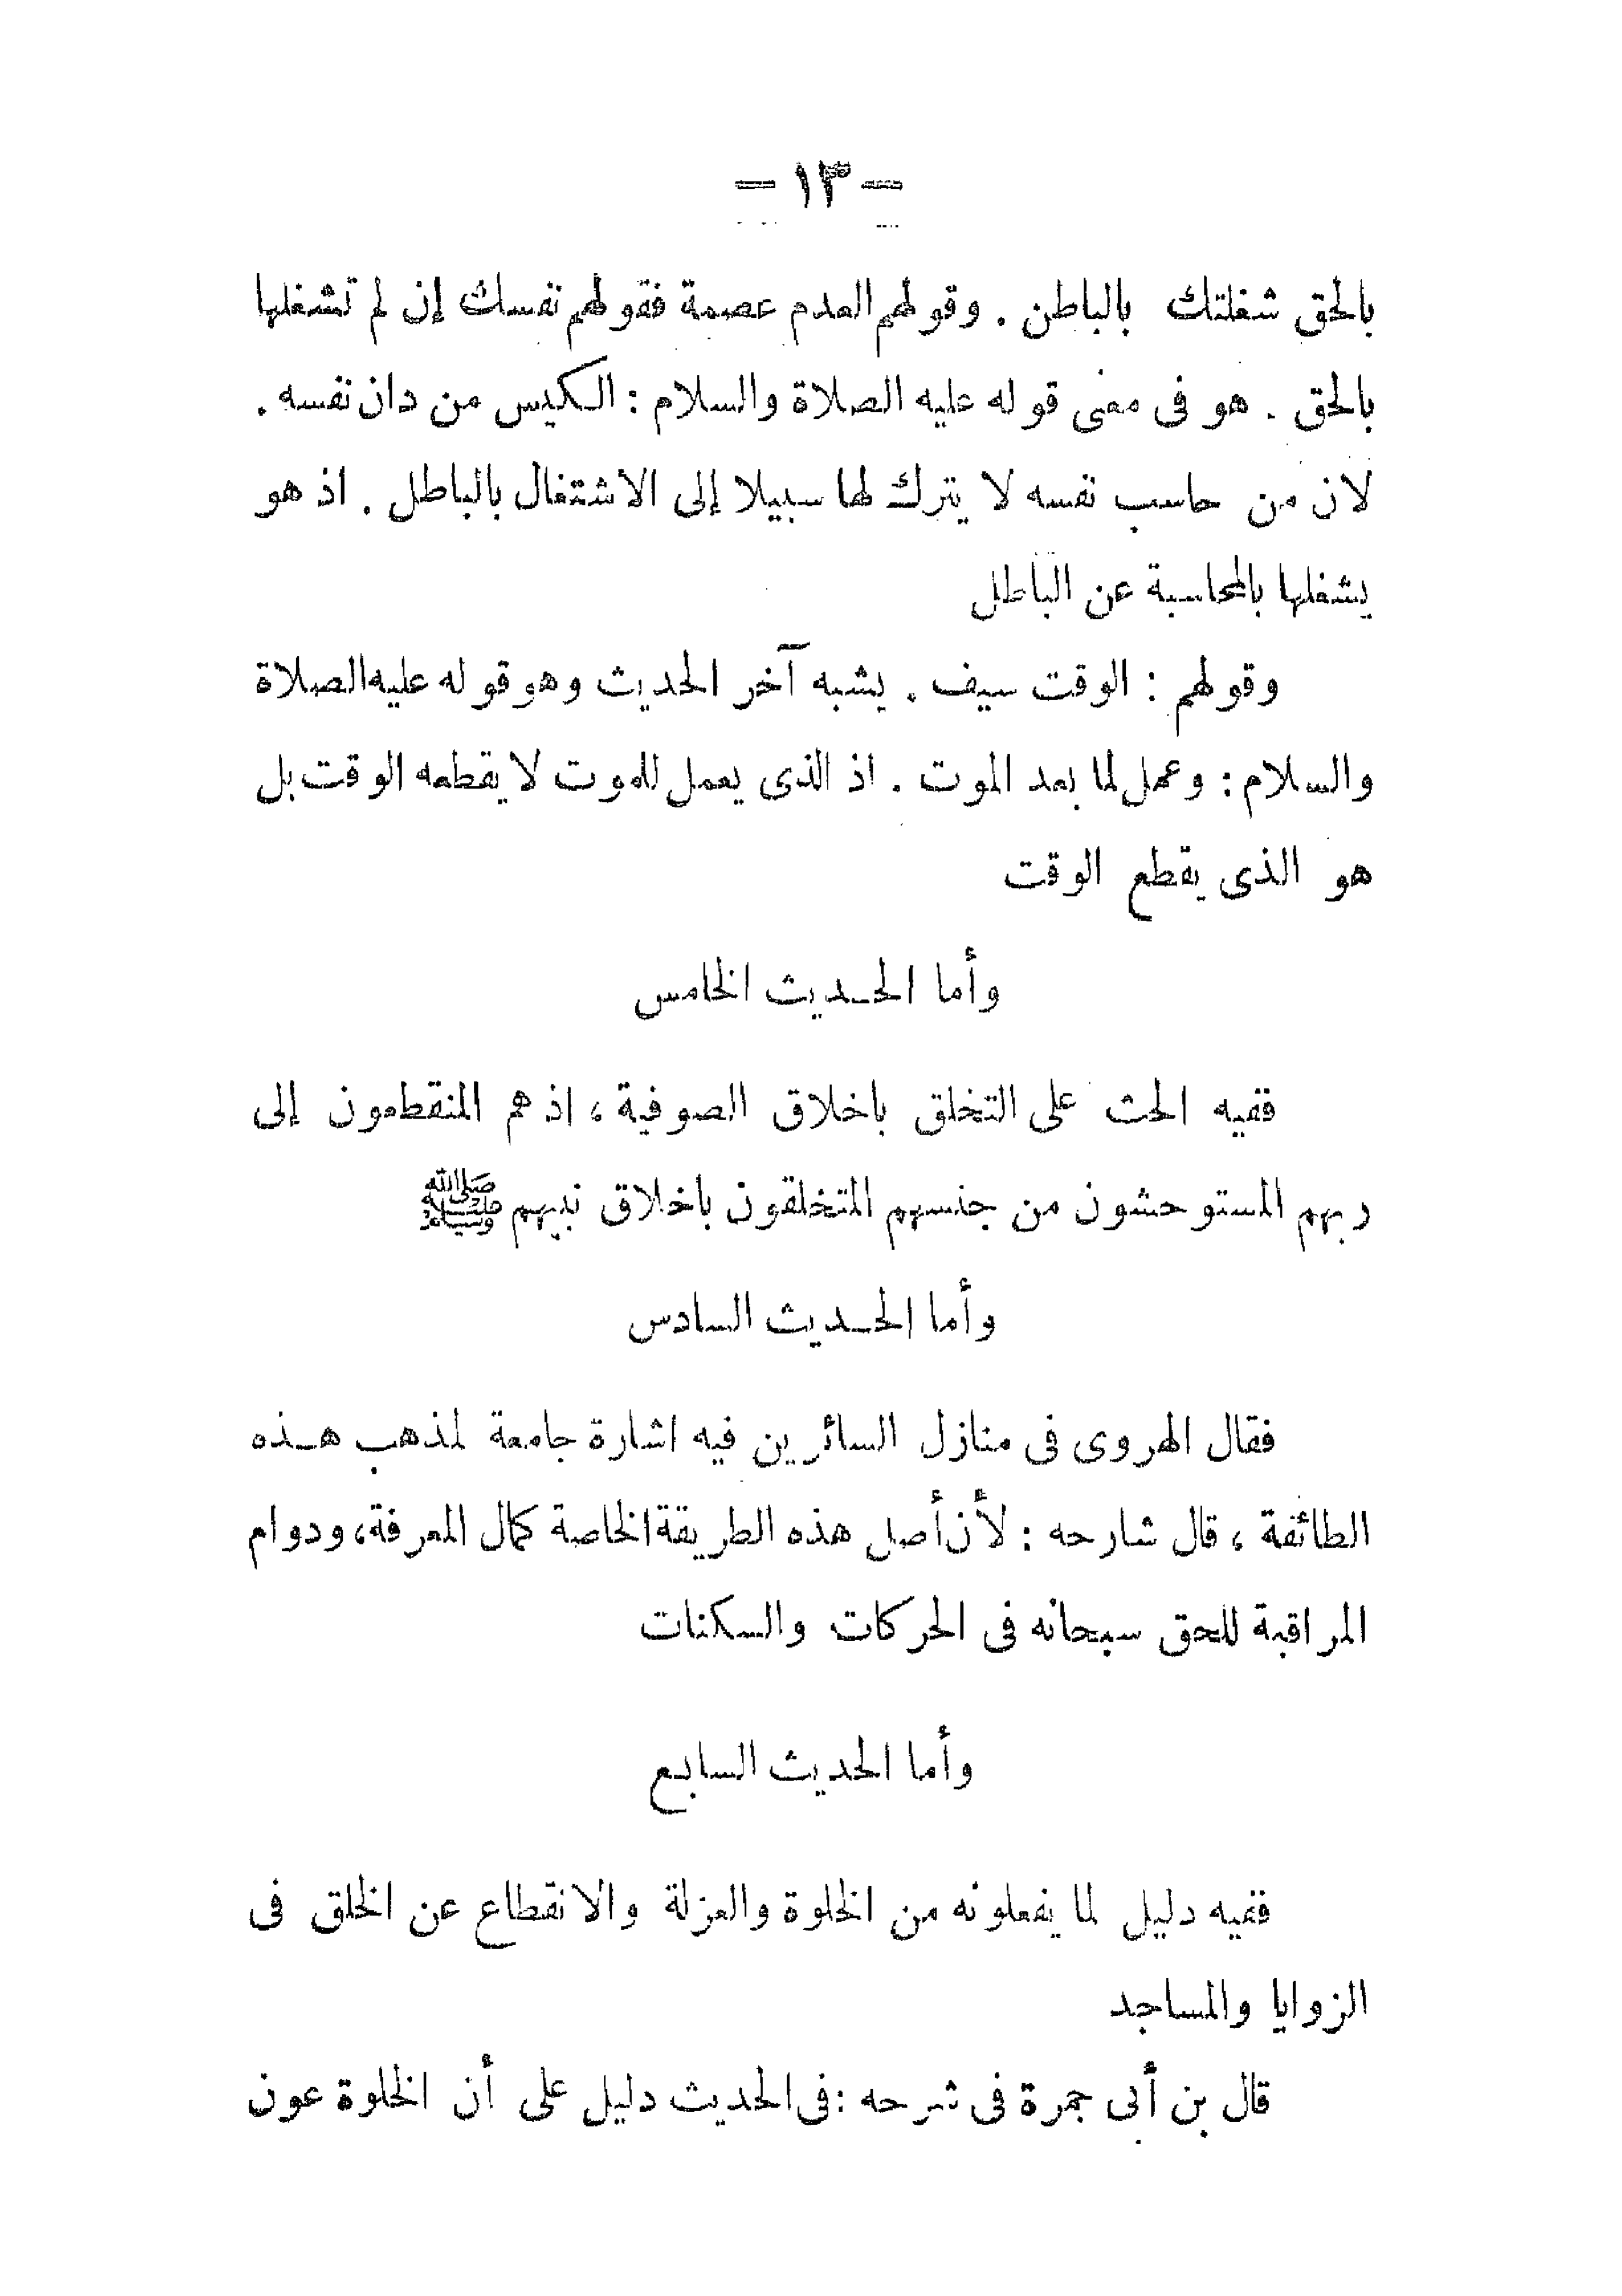 — ١٣ —
بالحق شغلتك بالباطن . وقولهم العدم عصمة فقولهم نفسك إن لم تشغلها
بالحق . هو فى معنى قوله عليه الصلاة والسلام : الكيس من دان نفسه .
لان من حاسب نفسه لا يترك لها سبيلا إلى الاشتغال بالباطل . اذ هو
يشغلها بالمحاسبة عن الباطل
وقولهم : الوقت سيف . يشبه آخر الحديث وهو قوله عليه الصلاة
والسلام : وعمل لما بعد الموت . اذ الذى يعمل للموت لا يقطعه الوقت بل
هو الذى يقطع الوقت
وأما الحديث الخامس
ففيه الحث على التخلق باخلاق الصوفية ، اذ هم المنقطعون إلى
ربهم المستوحشون من جنسهم المتخلقون باخلاق نبيهم ﷺ
وأما الحديث السادس
فقال الهروى فى منازل السائرين فيه اشارة جامعة لمذهب هذه
الطائفة ، قال شارحه : لأن أصل هذه الطريقة الخاصة كمال المعرفة، ودوام
المراقبة للحق سبحانه فى الحركات والسكنات
وأما الحديث السابع
ففيه دليل لما يفعلونه من الخلوة والعزلة والانقطاع عن الخلق فى
الزوايا والمساجد
قال بن أبى جمرة فى شرحه : فى الحديث دليل على أن الخلوة عون